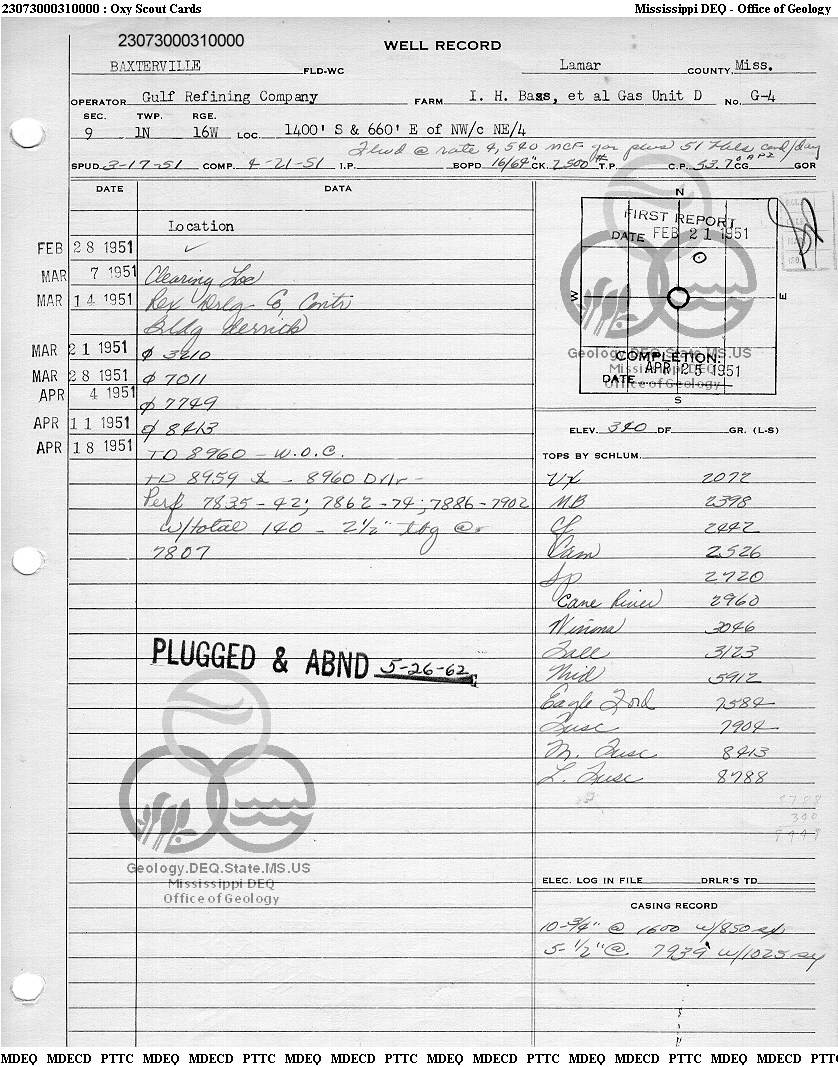 23073000310000 : Oxy Scout Cards Mississippi DEQ - Office of Geology
23073000310000
WELL RECORD
BAXTERVILLE FLD-WC Lamar COUNTY, Miss.
OPERATOR Gulf Refining Company FARM I. H. Bass, et al Gas Unit D No. G-4
SEC. TWP. RGE.
9 1N 16W LOC. 1400' S & 660' E of NW/c NE/4
Flwd @ rate 4,540 MCF gas plus 51 bbls cond/day
SPUD 3-17-51 COMP. 4-21-51 I.P. BOPD 16/64" CK. 2500# T.P. C.P. 53.7° API CG GOR
DATE DATA
Location
FEB 28 1951 ✓
MAR 7 1951 Clearing Loc
MAR 14 1951 Rex Drlg Co, Contr
Bldg derrick
MAR 21 1951 ϕ 3210
MAR 28 1951 ϕ 7011
APR 4 1951 ϕ 7749
APR 11 1951 ϕ 8413
APR 18 1951 TD 8960 - W.O.C.
TD 8959 - 8960 Drlr -
Perf 7835-42; 7862-74; 7886-7902
w/total 140 - 2½" tbg @
7807
PLUGGED & ABND 5-26-62
N
FIRST REPORT
DATE FEB 21 1951
W E
COMPLETION:
APR 25 1951
DATE
S
Geology.DEQ.State.MS.US
Mississippi DEQ
Office of Geology
ELEV. 340 DF GR. (L-S)
TOPS BY SCHLUM.
VX 2072
MB 2398
CH 2442
Cam 2526
Sp 2720
Cane River 2960
Winona 3046
Tall 3123
Mid 5912
Eagle Ford 7584
Tusc 7904
M. Tusc 8413
L. Tusc 8788
8788
340
Geology.DEQ.State.MS.US
Mississippi DEQ
Office of Geology
ELEC. LOG IN FILE DRLR'S TD
CASING RECORD
10-3/4" @ 1600 w/850 sx
5-1/2" @ 7939 w/1025 sx
MDEQ MDECD PTTC MDEQ MDECD PTTC MDEQ MDECD PTTC MDEQ MDECD PTTC MDEQ MDECD PTTC MDEQ MDECD PTT